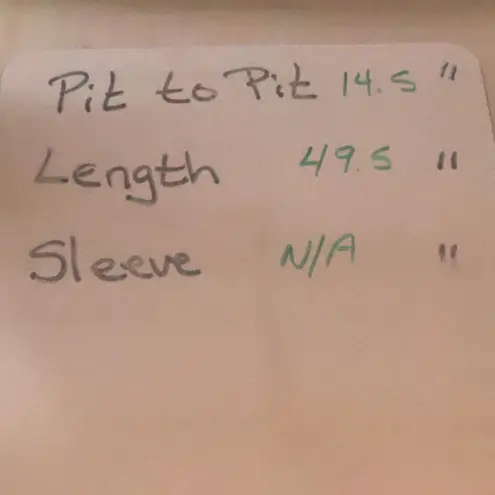 Pit to Pit 14.5 "
Length 49.5 "
Sleeve N/A "